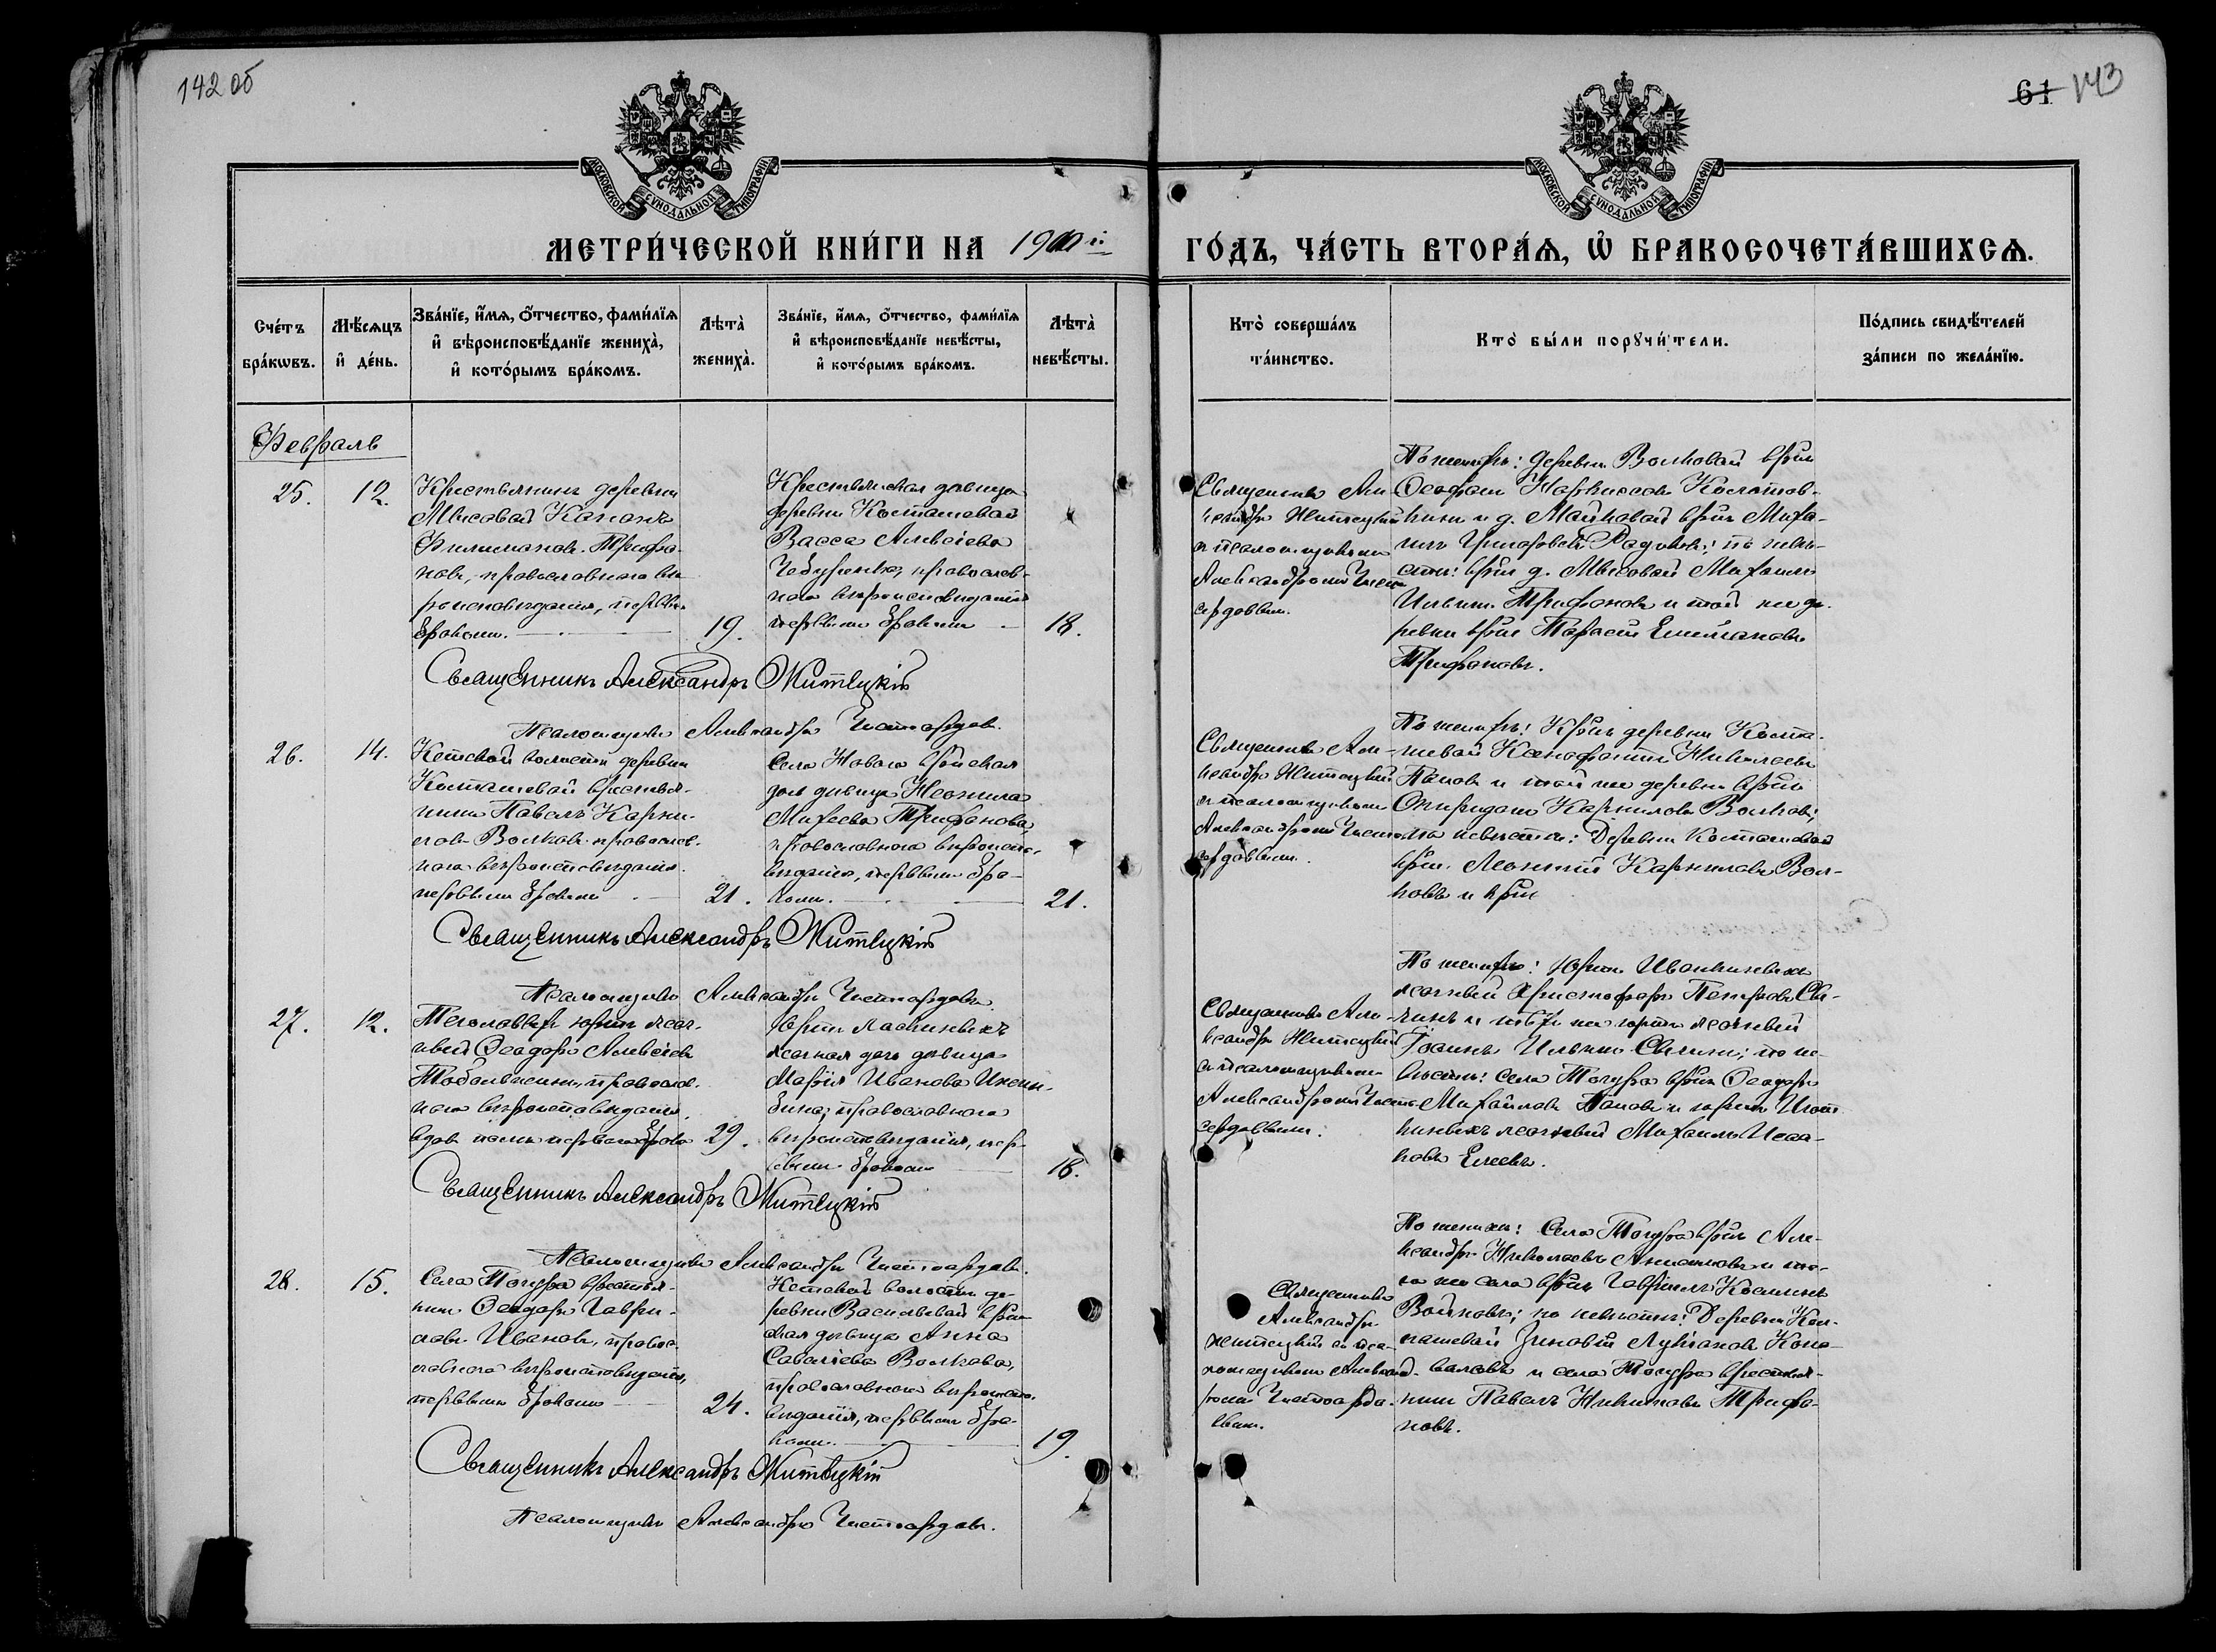 142 об
61 143
МОСКОВСКОЙ СУНОДАЛЬНОЙ ТИПОГРАФІИ
МОСКОВСКОЙ СУНОДАЛЬНОЙ ТИПОГРАФІИ
МЕТРИ́ЧЕСКОЙ КНИ́ГИ НА 19
ГО́ДЪ, ЧА́СТЬ ВТОРА́Ѧ, Ѡ҆ БРАКОСОЧЕТА́ВШИХСѦ.
Сче́тъ бра́кωвъ.
Мѣ́сѧцъ и҆ де́нь.
Зва́нїе, и҆́мѧ, ѻ҆́тчество, фами́лїѧ
и҆ вѣроисповѣ́данїе жениха̀,
и҆ кото́рымъ бра́комъ.
Лѣта̀ жениха̀.
Зва́нїе, и҆́мѧ, ѻ҆́тчество, фами́лїѧ
и҆ вѣроисповѣ́данїе невѣ́сты,
и҆ кото́рымъ бра́комъ.
Лѣта̀ невѣ́сты.
Кто̀ соверша́лъ
та́инство.
Кто̀ бы́ли порꙋчи́тели.
По́дпись свидѣ́телей
за́писи по жела́нїю.
Февраль
25.
12.
Крестьянинъ деревни
Мысовой
Филимоновъ Трифо-
новъ, православнаго вѣ-
роисповѣданія, первымъ
бракомъ.
19.
Крестьянская дѣвица
деревни Косташевой
Васса Алексѣева
православ-
наго вѣроисповѣданія
первымъ бракомъ
18.
Священникъ Але-
ксандръ Житецкій
съ псаломщикомъ
Александромъ Чисто-
сердовымъ.
По женихѣ: деревни Волковой крѣн
Ѳеофанъ Наркиссовъ
и д. Майковой крѣн Миха-
илъ Григорьевъ Родюковъ; по невѣ-
стѣ: крѣн д. Мысовой Михаилъ
Ильинъ Трифоновъ и той же де-
ревни крѣн Тарасій Емельяновъ
Трифоновъ.
Священникъ Александръ Житецкій
Псаломщикъ Александръ Чистосердовъ.
26.
14.
Кетской волости деревни
Косташевой крестья-
нинъ Павелъ Карни-
ловъ Волковъ православ-
наго вѣроисповѣданія
первымъ бракомъ
21.
Села Новаго крѣнская
дочь дѣвица Неонила
Михеева Трифонова,
православнаго вѣроиспо-
вѣданія, первымъ бра-
комъ.
21.
Священникъ Але-
ксандръ Житецкій
съ псаломщикомъ
Александромъ Чисто-
сердовымъ.
По женихѣ: Крѣнъ деревни Коста-
шевой Ксенофонтъ Николаевъ
Пановъ и той же деревни крѣн
Спиридонъ Карниловъ Волковъ;
по невѣстѣ: Деревни Косташевой
крѣн. Леонтій Карниловъ Вол-
ковъ и крѣн
Священникъ Александръ Житецкій
Псаломщикъ Александръ Чистосердовъ
27.
12.
юртъ ясач-
ный Ѳеодоръ Алексѣевъ
Тобольжинъ, православ-
наго вѣроисповѣданія
вдовъ послѣ перваго брака
29.
Юртъ
ясачная дочь дѣвица
Марія Иванова
православнаго
вѣроисповѣданія, пер-
вымъ бракомъ
18.
Священникъ Але-
ксандръ Житецкій
съ псаломщикомъ
Александромъ Чисто-
сердовымъ.
По женихѣ: Юртъ Иванкиныхъ
ясачный Христофоръ Петровъ Св-
и тѣхъ же юртъ ясачный
Іоаннъ Ильинъ по не-
вѣстѣ: села Тогура крѣн Ѳеодоръ
Михайловъ Пановъ и юртъ
ясачный Михаилъ Исаа-
ковъ
Священникъ Александръ Житецкій
Псаломщикъ Александръ Чистосердовъ.
28.
15.
Села Тогура крестья-
нинъ Ѳеодоръ Гаври-
ловъ Ивановъ, правос-
лавнаго вѣроисповѣданія,
первымъ бракомъ
24.
Кетской волости де-
ревни Васильевой крѣн-
ская дѣвица Анна
Саватіева Волкова,
православнаго вѣроиспо-
вѣданія, первымъ бра-
комъ.
19.
Священникъ
Александръ
Житецкій съ пса-
ломщикомъ Александ-
ромъ Чистосердо-
вымъ.
По женихѣ: Села Тогура крѣнъ Але-
ксандръ Николаевъ и то-
го же села крѣн Гавріилъ Косминъ
Войковъ; по невѣстѣ: Деревни Кол-
пашевой Зиновій Лукіановъ Коно-
валовъ и села Тогура крестья-
нинъ Павелъ Никитовъ Трифо-
новъ.
Священникъ Александръ Житецкій
Псаломщикъ Александръ Чистосердовъ.